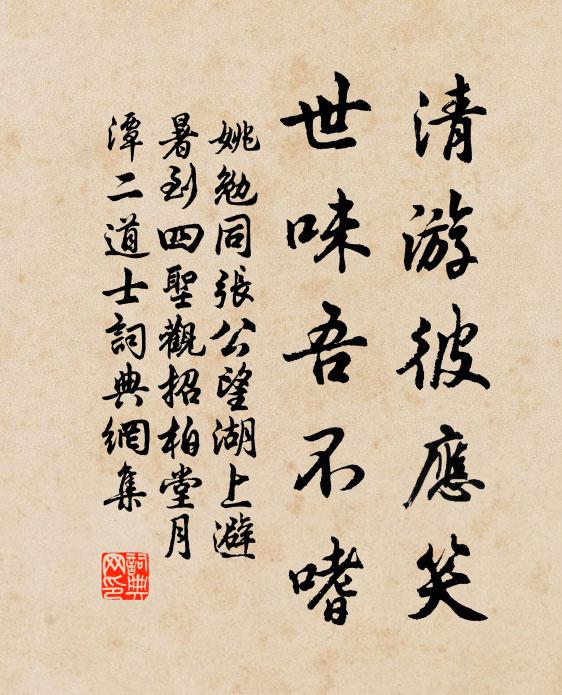 清游彼應笑
世味吾不嗜
姚勉同張公望湖上避
暑到四聖觀招柏堂月
潭二道士詞典網集
詞典網印